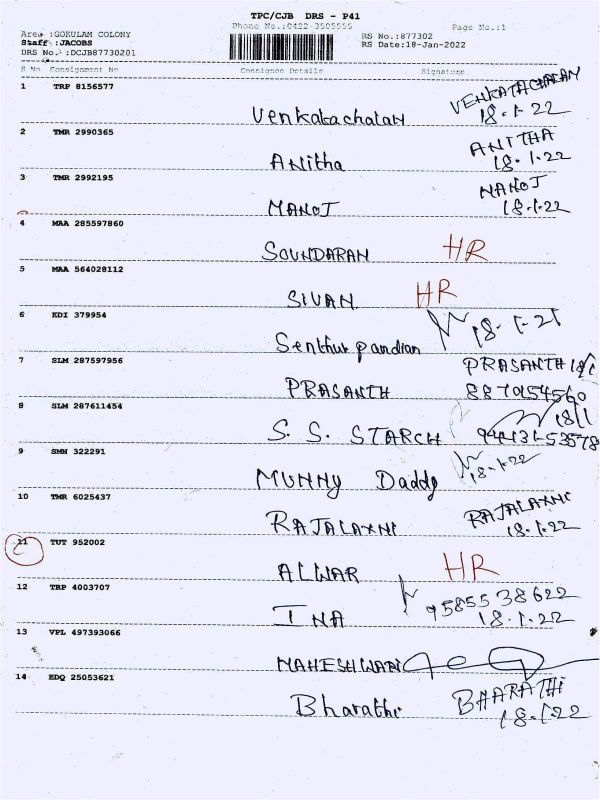 TPC/CJB DRS - P41
Phone No.:0422-3505555 Page No.:1
Area :GOKULAM COLONY
Staff :JACOBS
DRS No. :DCJB87730201
RS No.:877302
RS Date:18-Jan-2022
S No Consignment No Consignee Details Signature
1 TRP 8156577
Venkatachalan VENKATACHALAN
18.1.22
2 TMR 2990365
Anitha ANITHA
18.1.22
3 TMR 2992195
MANOJ MANOJ
18.1.22
4 MAA 285597860
SOUNDARAN HR
5 MAA 564028112
SIVAN HR
6 KDI 379954
Senthur pandian 18.1.21
7 SLM 287597956
PRASANTH PRASANTH 18/1
8 SLM 287611454
S. S. STARCH 18/1
9 SMN 322291
MUNNY Daddy 18.1.22
10 TMR 6025437
RAJALAXMI RAJALAXMI
18.1.22
11 TUT 952002
ALWAR HR
12 TRP 4003707
INA 9585538622
18.1.22
13 VPL 497393066
MAHESHWARI
14 EDQ 25053621
Bharathi BHARATHI
18.1.22